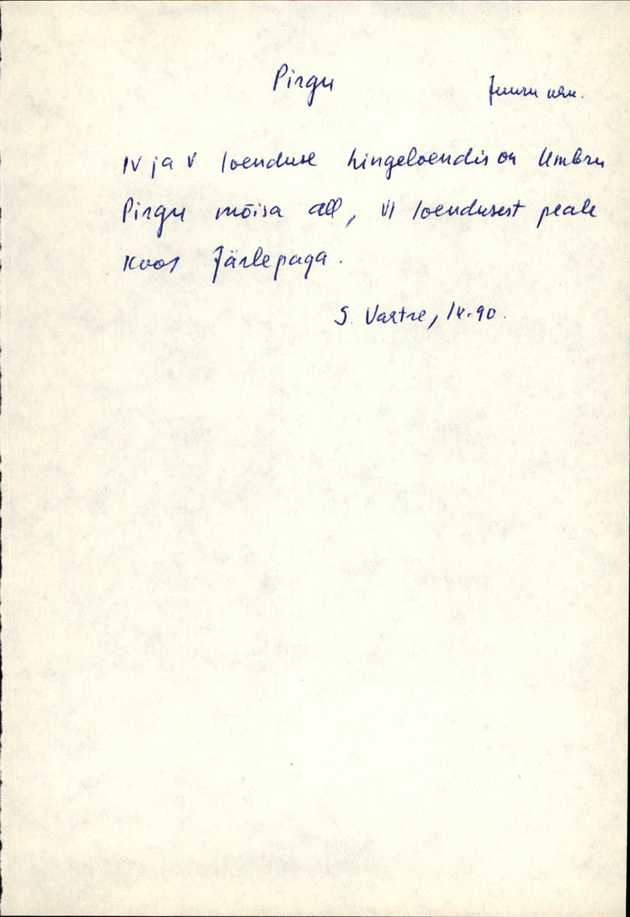 Pirgu
Juuru khk.
IV ja V loenduse hingeloendis on Umbru
Pirgu mõisa all, VI loendusest peale
koos Järlepaga.
S. Vartre, IX.90.